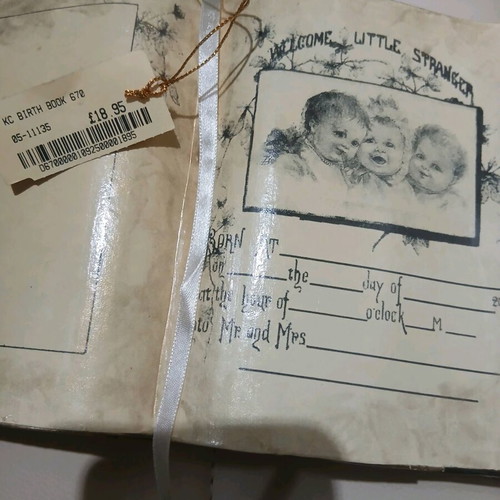 KC BIRTH BOOK 670
£18.95
05-11135
D670000010925000001895
WELCOME LITTLE STRANGER
BORN AT
on the day of
at the hour of o'clock M
to Mr. and Mrs